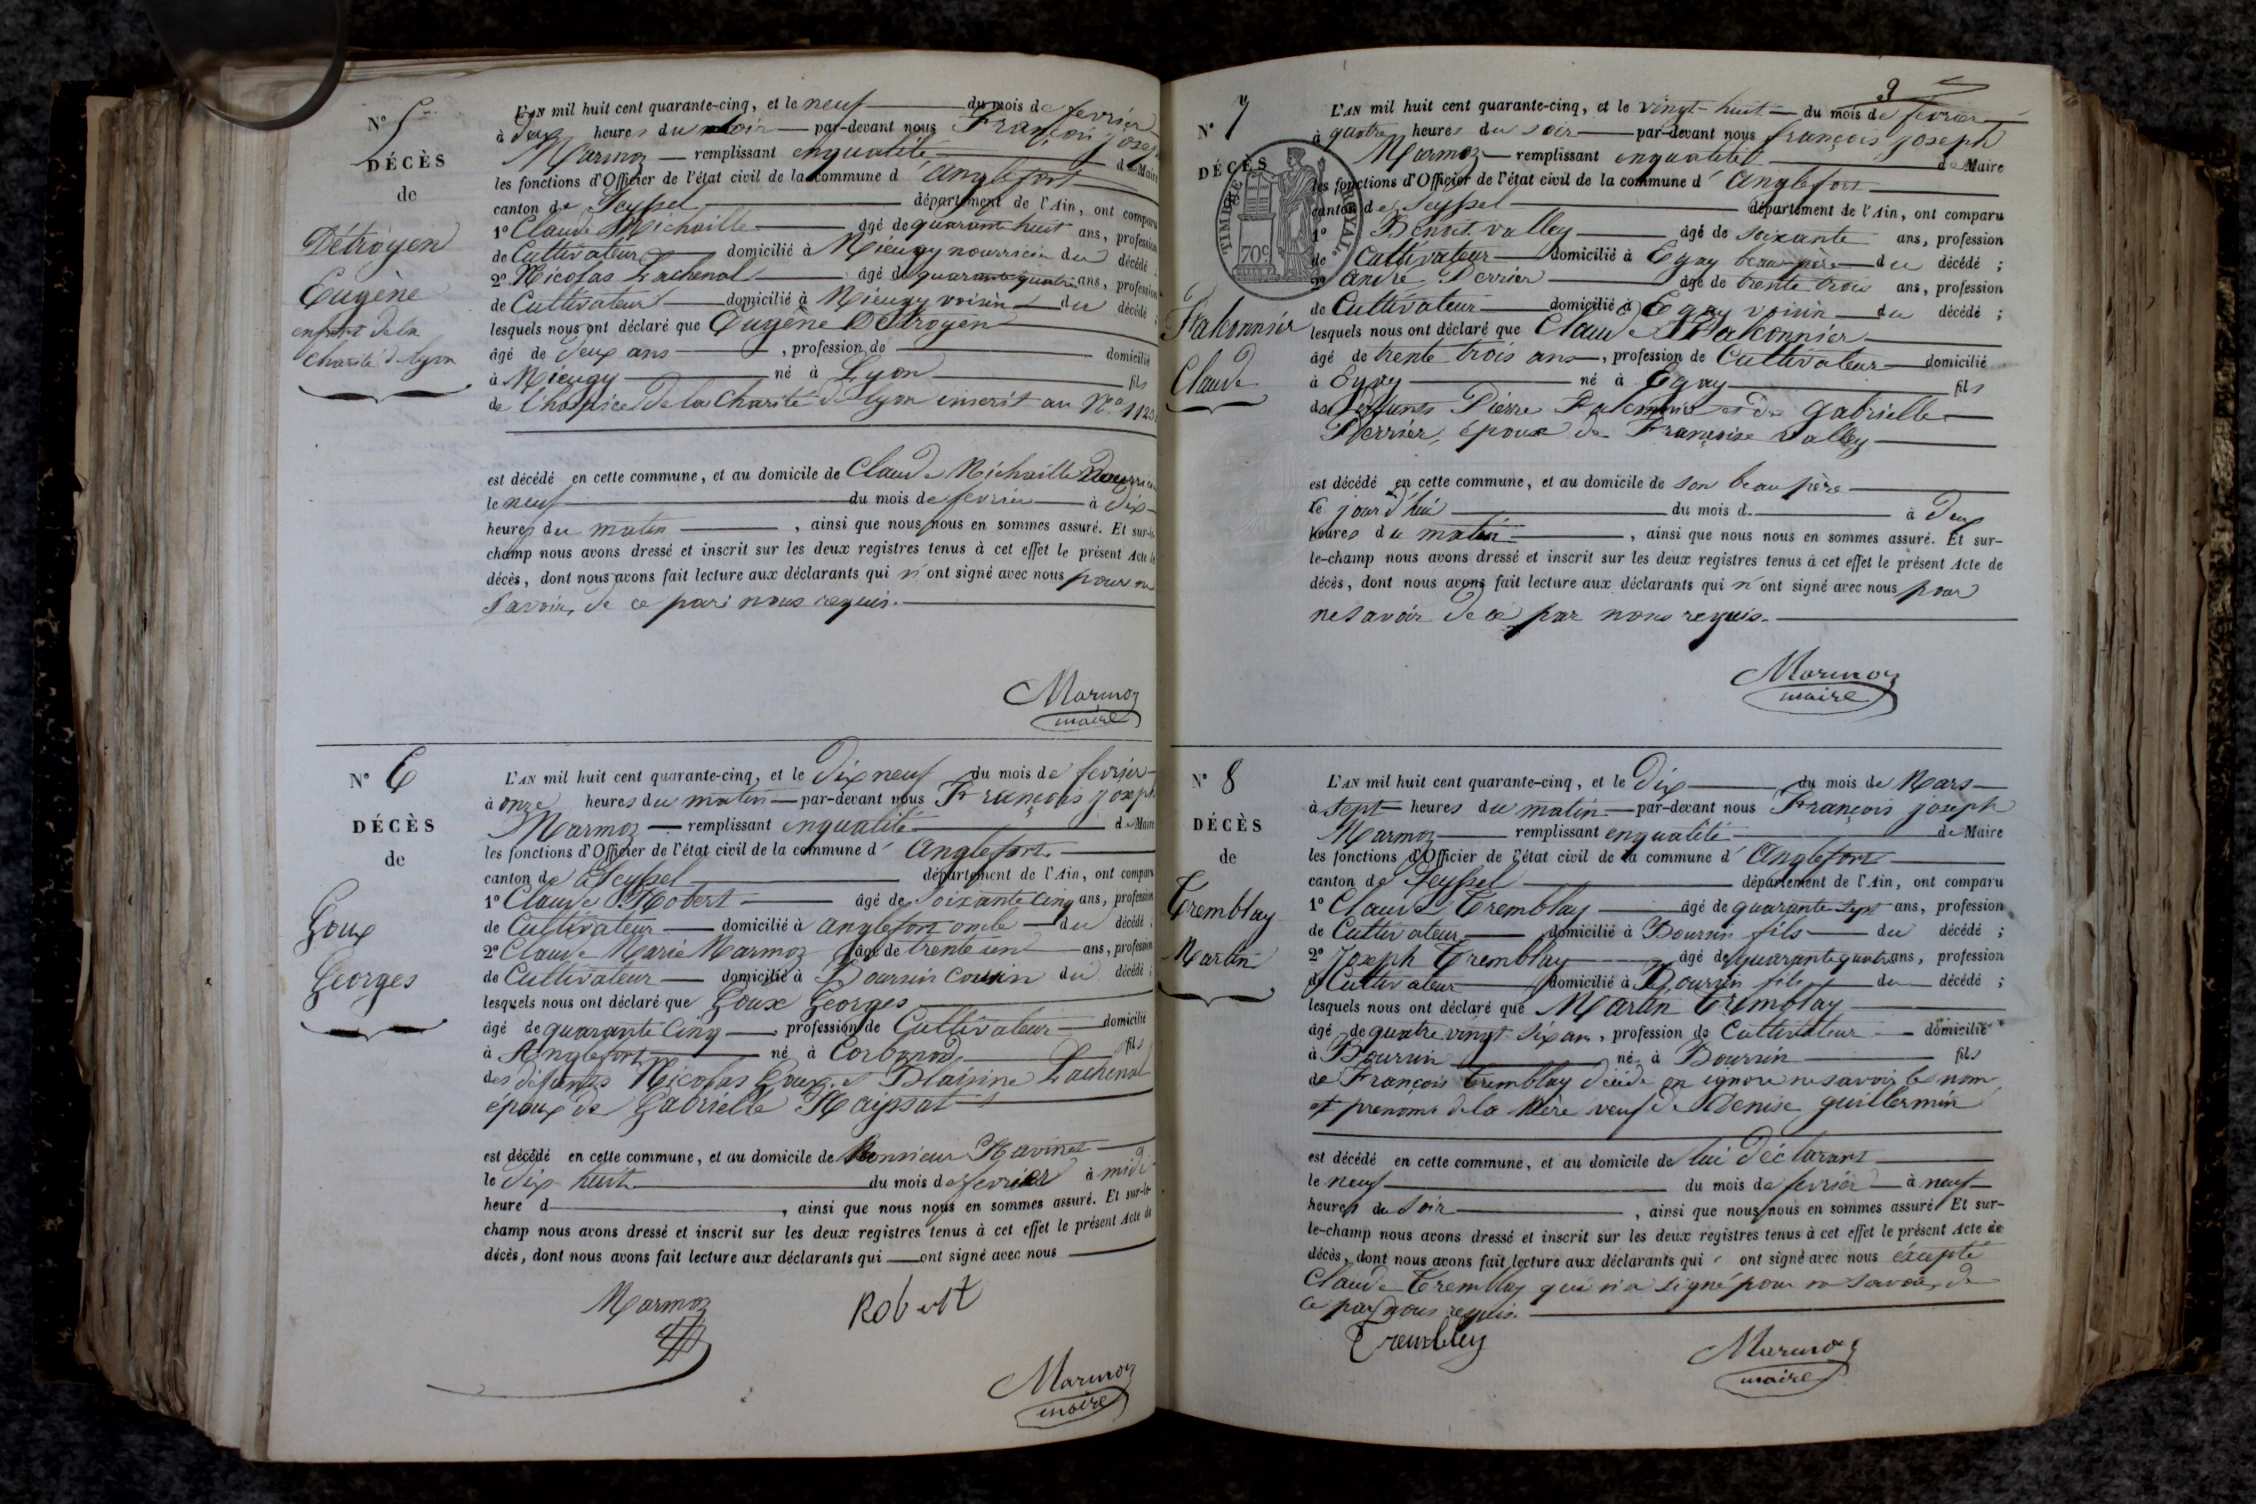 N° 5
DÉCÈS
de
Détroyen
Eugène
enfant de la
Charité de Lyon
L'AN mil huit cent quarante-cinq, et le neuf du mois de fevrier
à deux heures du soir par-devant nous François joseph
Marmoz remplissant enqualité de Maire
les fonctions d'Officier de l'état civil de la commune d'anglefort
canton de Seyssel département de l'Ain, ont comparu
1° Claude Michaille âgé de quarante huit ans, profession
de Cultivateur domicilié à Mieugy nourricier du décédé ;
2° Nicolas Lachenal âgé de quarante quatre ans, profession
de Cultivateur domicilié à Mieugy voisin du décédé ;
lesquels nous ont déclaré que Eugène Détroyen
âgé de deux ans , profession de domicilié
à Mieugy né à Lyon fils
de l'hospice de la Charité de lyon inscrit au N°
est décédé en cette commune, et au domicile de Claude Michaille
le neuf du mois de fevrier à dix
heures du matin , ainsi que nous nous en sommes assuré. Et sur-le-
champ nous avons dressé et inscrit sur les deux registres tenus à cet effet le présent Acte de
décès, dont nous avons fait lecture aux déclarants qui n'ont signé avec nous pour ne
savoir, de ce par nous requis.
Marmoz
maire
N° 6
DÉCÈS
de
Goux
Georges
L'AN mil huit cent quarante-cinq, et le dix neuf du mois de fevrier
à onze heures du matin par-devant nous François joseph
Marmoz remplissant enqualité de Maire
les fonctions d'Officier de l'état civil de la commune d'anglefort
canton de Seyssel département de l'Ain, ont comparu
1° Claude Robert âgé de soixante cinq ans, profession
de Cultivateur domicilié à anglefort oncle du décédé ;
2° Claude Marie Marmoz âgé de trente un ans, profession
de Cultivateur domicilié à Boursin cousin du décédé ;
lesquels nous ont déclaré que Goux Georges
âgé de quarante cinq , profession de Cultivateur domicilié
à Anglefort né à Corbonod fils
des défunts Nicolas Goux et Blaisine Lachenal
époux de Gabrielle
est décédé en cette commune, et au domicile de Monsieur Ravinet
le dix huit du mois de fevrier à midi
heure d , ainsi que nous nous en sommes assuré. Et sur-le-
champ nous avons dressé et inscrit sur les deux registres tenus à cet effet le présent Acte de
décès, dont nous avons fait lecture aux déclarants qui ont signé avec nous
Marmoz Robert
Marmoz
maire
9
N° 7
DÉCÈS
TIMBRE ROYAL
70c
Falconnier
Claude
L'AN mil huit cent quarante-cinq, et le vingt-huit du mois de fevrier
à quatre heures du soir par-devant nous françois joseph
Marmoz remplissant enqualité de Maire
les fonctions d'Officier de l'état civil de la commune d'anglefort
canton de Seyssel département de l'Ain, ont comparu
1° Benoit valley âgé de soixante ans, profession
de Cultivateur domicilié à Egay beau père du décédé ;
2° andré Perrier âgé de trente trois ans, profession
de Cultivateur domicilié à Egay voisin du décédé ;
lesquels nous ont déclaré que Claude Falconnier
âgé de trente trois ans , profession de Cultivateur domicilié
à Egay né à Egay fils
de defunts Pierre Falconnier et de Gabrielle
Perrier, époux de Françoise valley
est décédé en cette commune, et au domicile de son beau père
le jourd'hui du mois d à deux
heures du matin , ainsi que nous nous en sommes assuré. Et sur-
le-champ nous avons dressé et inscrit sur les deux registres tenus à cet effet le présent Acte de
décès, dont nous avons fait lecture aux déclarants qui n'ont signé avec nous pour
ne savoir de ce par nous requis.
Marmoz
maire
N° 8
DÉCÈS
de
Tremblay
Martin
L'AN mil huit cent quarante-cinq, et le dix du mois de Mars
à sept heures du matin par-devant nous François joseph
Marmoz remplissant enqualité de Maire
les fonctions d'Officier de l'état civil de la commune d'anglefort
canton de Seyssel département de l'Ain, ont comparu
1° Claude Tremblay âgé de quarante sept ans, profession
de Cultivateur domicilié à Boursin fils du décédé ;
2° Joseph Tremblay âgé de quarante quatre ans, profession
de Cultivateur domicilié à Boursin fils du décédé ;
lesquels nous ont déclaré que Martin Tremblay
âgé de quatre vingt six ans, profession de Cultivateur domicilié
à Boursin né à Boursin fils
de François Tremblay décédé on ignore ne savoir le nom
et prenoms de la Mère veuf de Denise guillermin
est décédé en cette commune, et au domicile de lui déclarant
le neuf du mois de fevrier à neuf
heures du soir , ainsi que nous nous en sommes assuré. Et sur-
le-champ nous avons dressé et inscrit sur les deux registres tenus à cet effet le présent Acte de
décès, dont nous avons fait lecture aux déclarants qui ont signé avec nous excepté
Claude Tremblay qui n'a signé pour ne savoir, de
ce par nous requis.
Trembley
Marmoz
maire